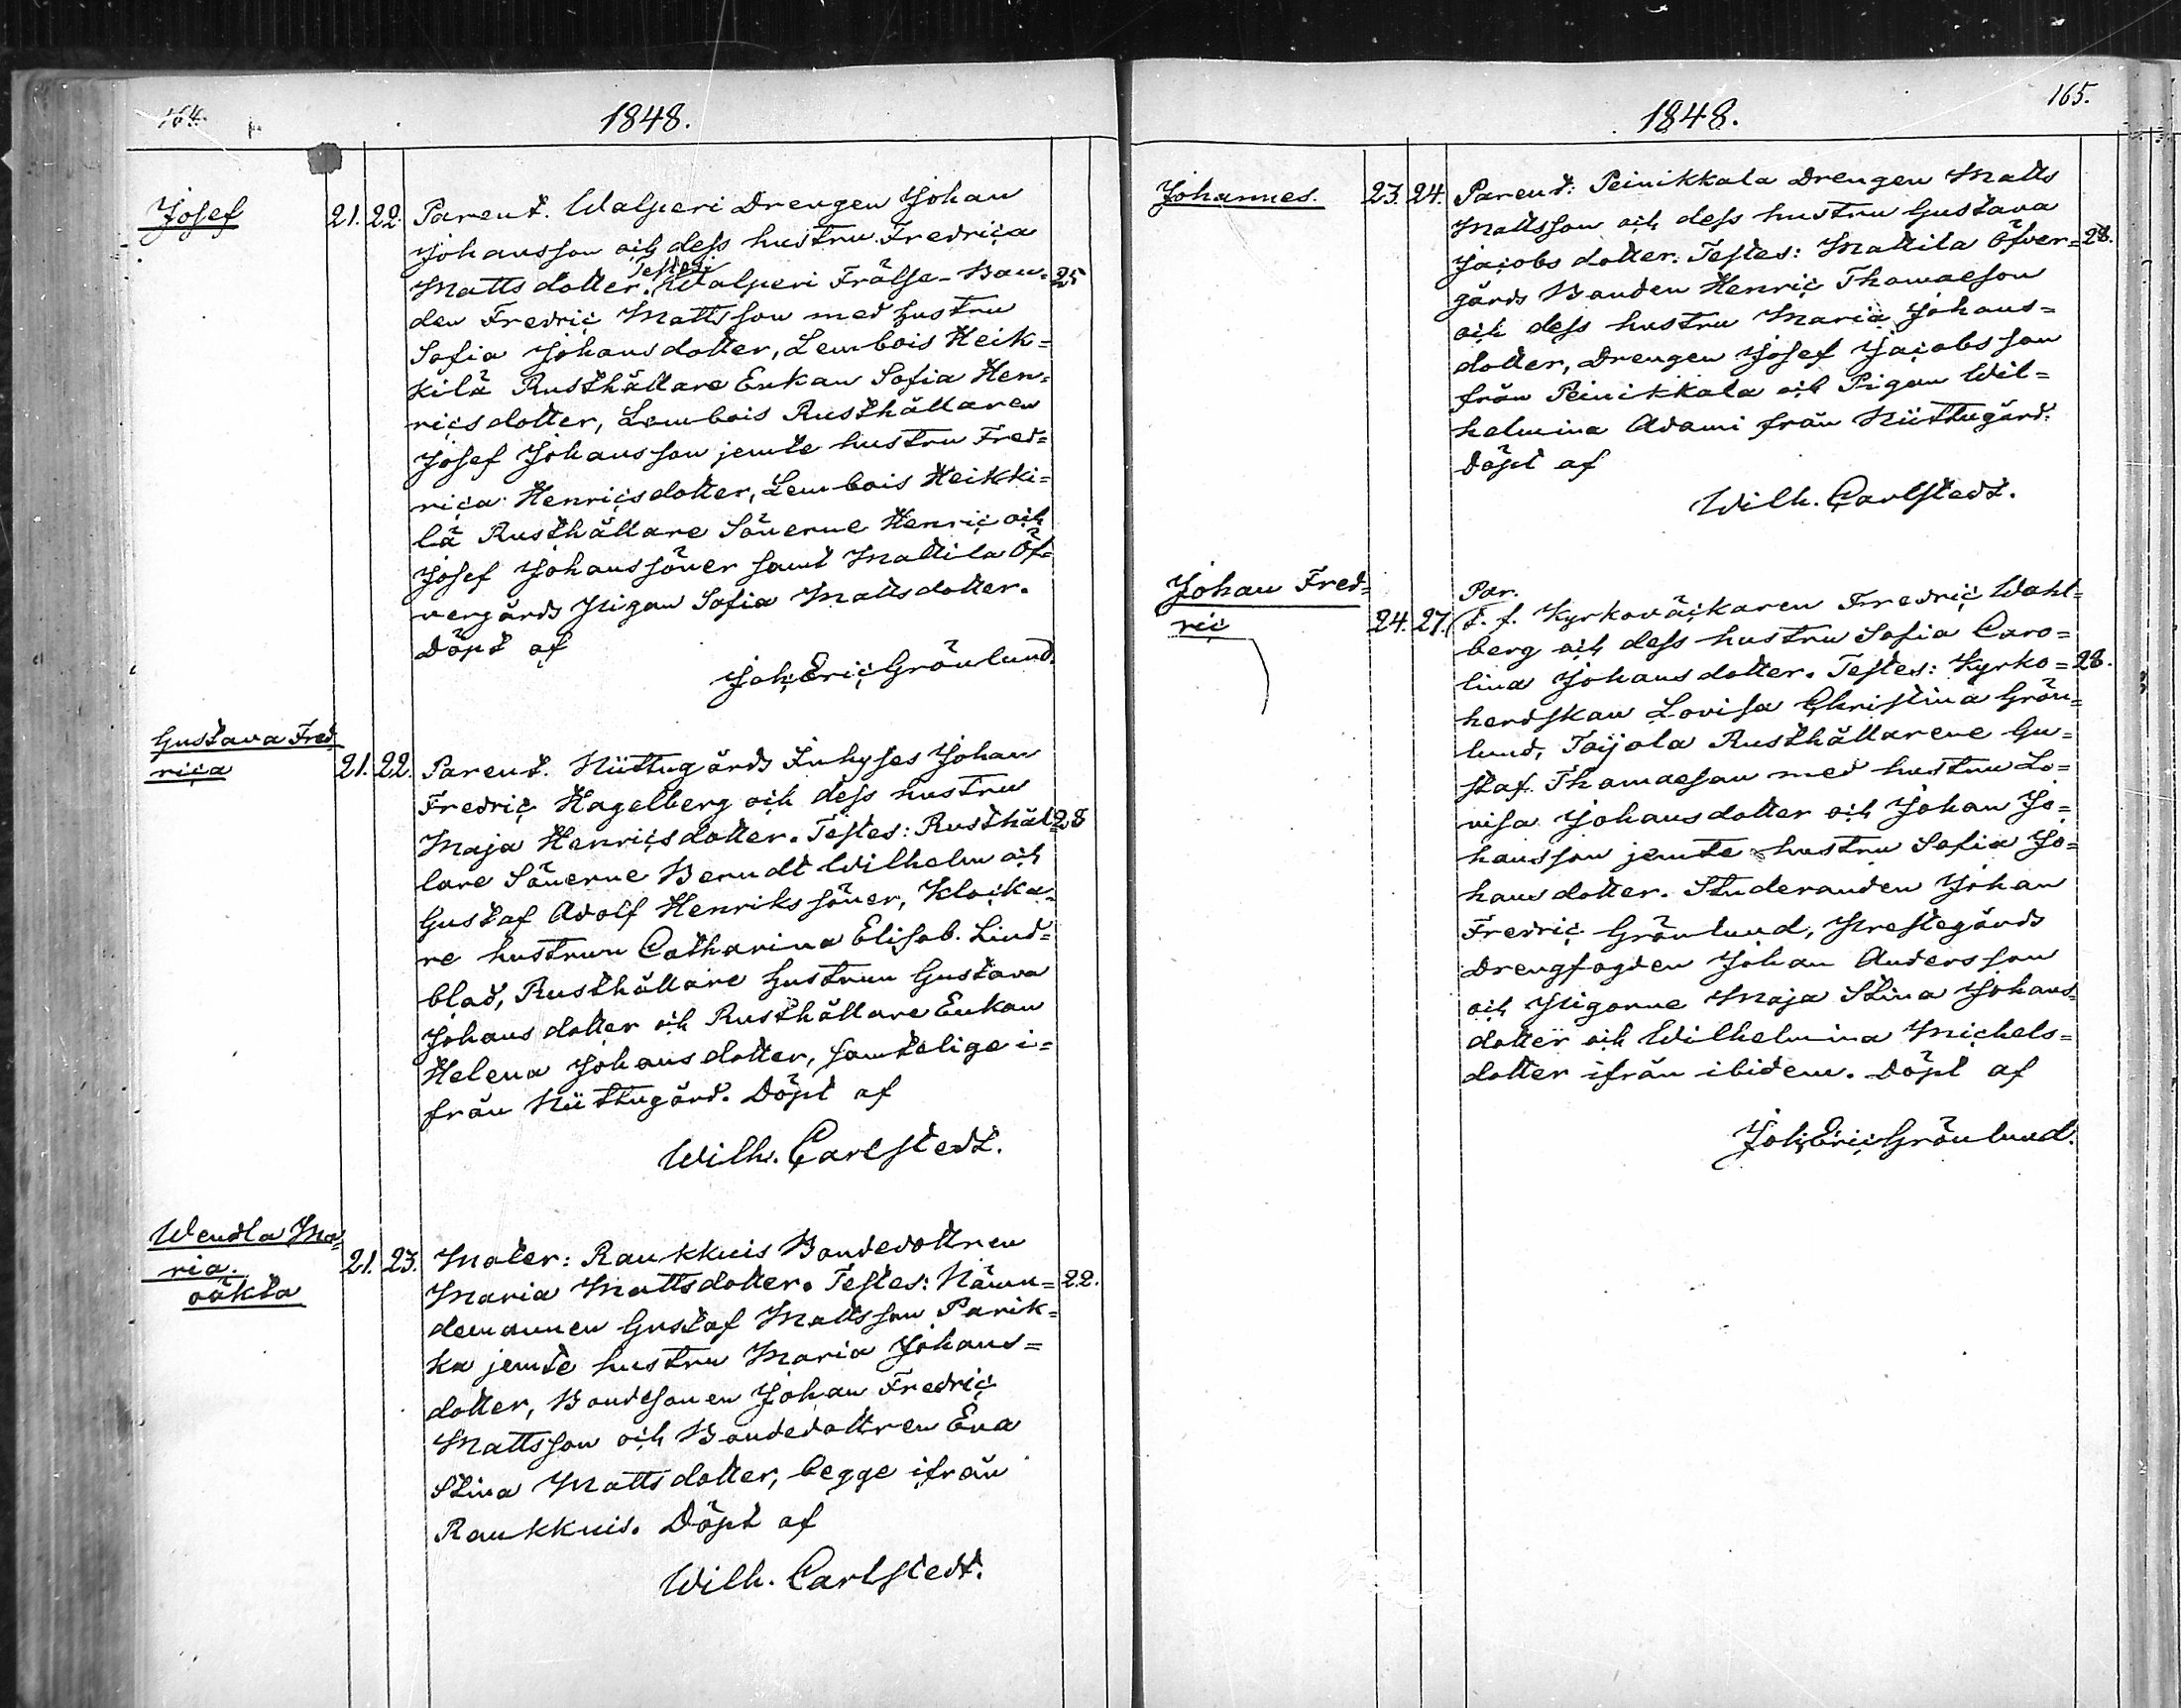 164.
1848.
Josef
21. 22. Parent. Walperi Drengen Johan
Johansson och dess hustru Fredrica
Testes:
Matts dotter. Walperi Frälse-Bon= 25
den Fredric Mattsson med hustru
Sofia Johansdotter, Lembois Heik=
kilä Rusthållare Enkan Sofia Hen=
ricsdotter, Lembois Rusthållaren
Josef Johansson jemte hustru Fred=
rica Henricsdotter, Lembois Heikki=
lä Rusthållare Sönerne Henric och
Josef Johanssöner samt Mattila Öf=
vergårds Pigan Sofia Mattsdotter.
Döpt af
Joh. Eric Grönlund.
Gustava Fred=
rica
21. 22. Parent. Niittugårds Inhyses Johan
Fredric Hagelberg och dess hustru
Maja Henricsdotter. Testes: Rusthål= 28
lare Sönerne Berndt Wilhelm och
Gustaf Adolf Henrikssöner, Klocka=
re hustrun Catharina Elisab. Lind=
blad, Rusthållare hustrun Gustava
Johansdotter och Rusthållare Enkan
Helena Johansdotter, samtelige i=
från Niittugård. Döpt af
Wilh. Carlstedt.
Wendla Ma=
ria.
oäkta
21. 23. Mater: Raukkuis Bondedottren
Maria Mattsdotter. Testes: Nämn= 22.
demannen Gustaf Mattsson Parik=
ka jemte hustru Maria Johans=
dotter, Bondsonen Johan Fredric
Mattsson och Bondedottren Eva
Stina Mattsdotter, begge ifrån
Raukkuis. Döpt af
Wilh. Carlstedt.
165.
1848.
Johannes.
23. 24. Parent: Peinikkala Drengen Matts
Mattsson och dess hustru Gustava
Jacobs dotter. Testes: Mattila Öfver= 28.
gårds Bonden Henric Thomasson
och dess hustru Maria Johans=
dotter, Drengen Josef Jacobsson
från Peinikkala och Pigan Wil=
helmina Adami från Niittugård.
Döpt af
Wilh. Carlstedt.
Johan Fred=
ric
Par.
24. 27. T. f. Kyrkoväckaren Fredric Wahl=
berg och dess hustru Sofia Caro=
lina Johansdotter. Testes: Kyrko= 28.
herdskan Lovisa Christina Grön=
lund, Toijola Rusthållarene Gu=
staf Thomasson med hustru Lo=
visa Johansdotter och Johan Jo=
hansson jemte hustru Sofia Jo=
hansdotter. Studeranden Johan
Fredric Grönlund, Prestegårds
Drengfogden Johan Andersson
och Pigorne Maja Stina Johans=
dotter och Wilhelmina Michels=
dotter ifrån ibidem. Döpt af
Joh. Eric Grönlund.